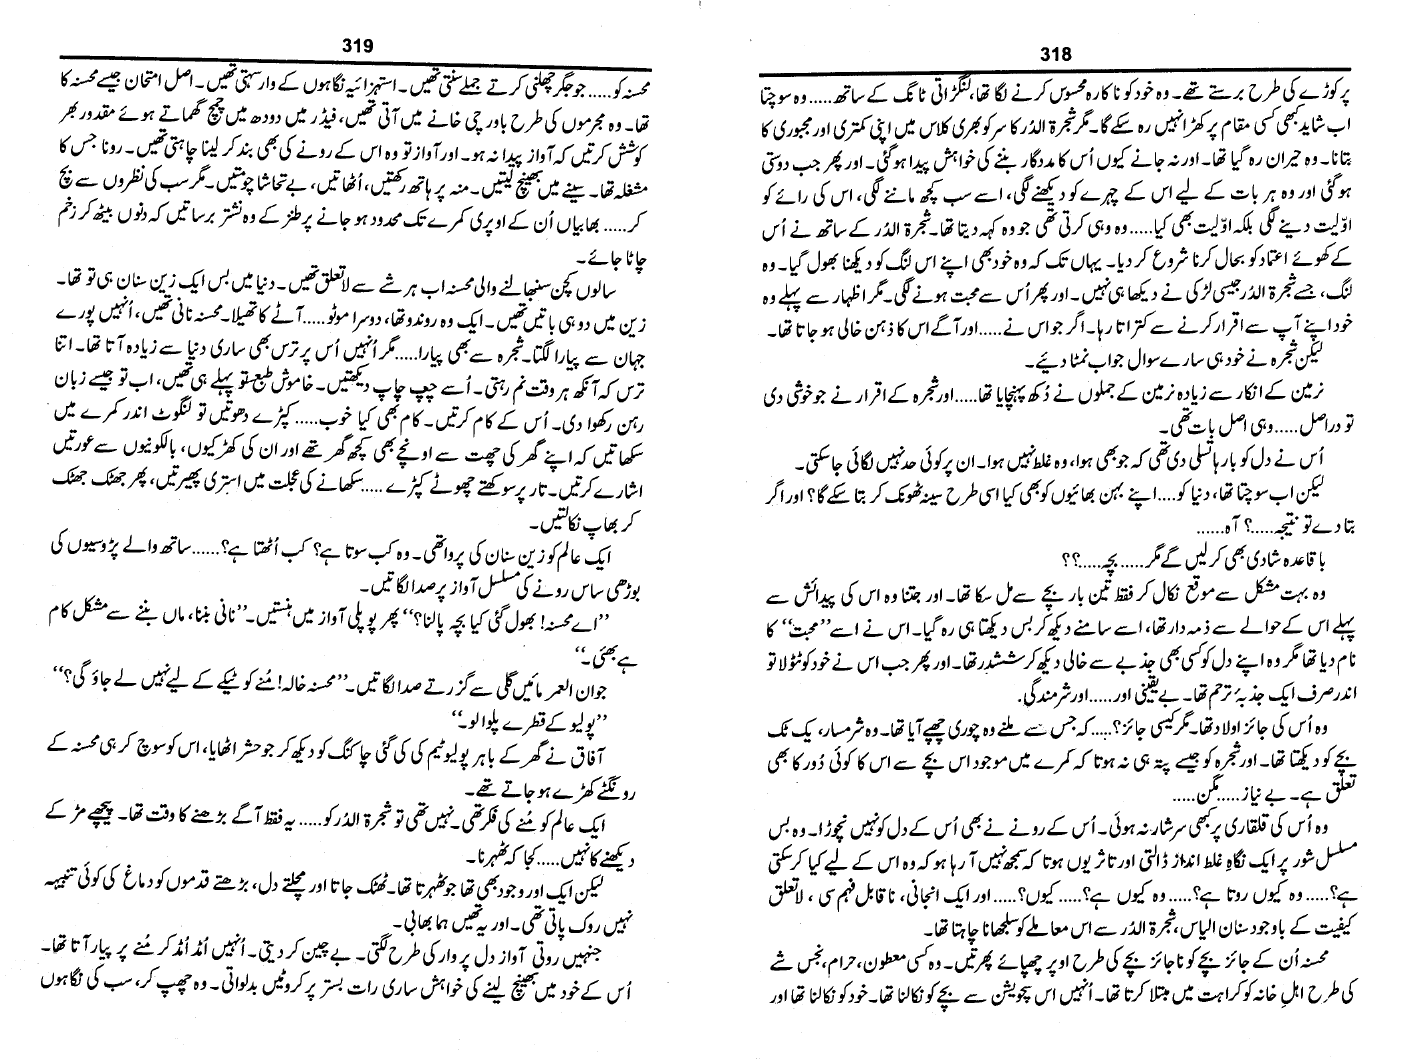 318
پر کوڑے کی طرح برستے تھے۔ وہ خود کو ناکارہ محسوس کرنے لگا تھا، لنگڑاتی ٹانگ کے ساتھ..... وہ سوچتا
اب شاید بھی کسی مقام پر کھڑا نہیں رہ سکے گا۔ مگر شجرۃ الدُر کا سرکو بھری کلاس میں اپنی کمتری اور مجبوری کا
بتانا۔ وہ حیران رہ گیا تھا۔ اور نہ جانے کیوں اُس کا مددگار بننے کی خواہش پیدا ہو گئی۔ اور پھر جب دوستی
ہو گئی اور وہ ہر بات کے لیے اس کے چہرے کو دیکھنے لگی، اسے سب کچھ ماننے لگی، اس کی رائے کو
اوّلیت دینے لگی بلکہ اوّلیت بھی کیا..... وہ وہی کرتی تھی جو وہ کہہ دیتا تھا۔ شجرۃ الدُر کے ساتھ نے اُس
کے کھوئے اعتماد کو بحال کرنا شروع کر دیا۔ یہاں تک کہ وہ خود بھی اپنے اس لنگ کو دیکھنا بھول گیا۔ وہ
لنگ، جسے شجرۃ الدُر جیسی لڑکی نے دیکھا ہی نہیں۔ اور پھر اُس سے محبت ہونے لگی۔ مگر اظہار سے پہلے وہ
خود اپنے آپ سے اقرار کرنے سے کتراتا رہا۔ اگر جو اس نے..... اور آگے اس کا ذہن خالی ہو جاتا تھا۔
لیکن شجرہ نے خود ہی سارے سوال جواب نمٹا دیے۔
نرمین کے انکار سے زیادہ نرمین کے جملوں نے دُکھ پہنچایا تھا..... اور شجرہ کے اقرار نے جو خوشی دی
تو دراصل..... وہی اصل بات تھی۔
اُس نے دل کو بارہا تسلی دی تھی کہ جو بھی ہوا، وہ غلط نہیں ہوا۔ ان پر کوئی حد نہیں لگائی جا سکتی۔
لیکن اب سوچتا تھا، دنیا کو.... اپنے بہن بھائیوں کو بھی کیا اسی طرح سینہ ٹھونک کر بتا سکے گا؟ اور اگر
بتا دے تو نتیجہ.....؟ آہ......
باقاعدہ شادی بھی کر لیں گے مگر..... بچہ.....؟؟
وہ بہت مشکل سے موقع نکال کر فقط تین بار بچے سے مل سکا تھا۔ اور جتنا وہ اس کی پیدائش سے
پہلے اس کے حوالے سے ذمہ دار تھا، اسے سامنے دیکھ کر بس دیکھتا ہی رہ گیا۔ اس نے اسے ”محبت“ کا
نام دیا تھا مگر وہ اپنے دل کو کسی بھی جذبے سے خالی دیکھ کر ششدر تھا۔ اور پھر جب اس نے خود کو ٹٹولا تو
اندر صرف ایک جذبۂ ترحم تھا۔ بے یقینی اور..... اور شرمندگی۔
وہ اُس کی جائز اولاد تھا۔ مگر کیسی جائز؟..... کہ جس سے ملنے وہ چوری چھپے آیا تھا۔ وہ شرمسار، یک ٹک
بچے کو دیکھتا تھا۔ اور شجرہ کو جیسے پتہ ہی نہ ہوتا کہ کمرے میں موجود اس بچے سے اس کا کوئی دُور کا بھی
تعلق ہے۔ بے نیاز..... مگن.....
وہ اُس کی قلقاری پر کبھی سرشار نہ ہوئی۔ اُس کے رونے نے بھی اُس کے دل کو نہیں نچوڑا۔ وہ بس
مسلسل شور پر ایک نگاہِ غلط انداز ڈالتی اور تاثر یوں ہوتا کہ سمجھ نہیں آ رہا ہو کہ وہ اس کے لیے کیا کر سکتی
ہے؟..... وہ کیوں روتا ہے؟..... وہ کیوں ہے؟..... کیوں؟..... اور ایک انجانی، ناقابل فہم سی، لاتعلق
کیفیت کے باوجود سنان الیاس، شجرۃ الدُر سے اس معاملے کو سلجھانا چاہتا تھا۔
محسنہ اُن کے جائز بچے کو ناجائز بچے کی طرح اوپر چھپائے پھرتیں۔ وہ کسی معطون، حرام، نجس شے
کی طرح اہلِ خانہ کو کراہت میں مبتلا کرتا تھا۔ اُنہیں اس سچویشن سے بچے کو نکالنا تھا۔ خود کو نکالنا تھا اور
319
محسنہ کو..... جو جگر چھلنی کرتے جملے سنتی تھیں۔ استہزائیہ نگاہوں کے وار سہتی تھیں۔ اصل امتحان جیسے محسنہ کا
تھا۔ وہ مجرموں کی طرح باورچی خانے میں آتی تھیں، فیڈر میں دودھ میں چمچ گھماتے ہوئے مقدور بھر
کوشش کرتیں کہ آواز پیدا نہ ہو۔ اور آواز تو وہ اس کے رونے کی بھی بند کر لینا چاہتی تھیں۔ رونا جس کا
مشغلہ تھا۔ سینے میں بھینچ لیتیں۔ منہ پر ہاتھ رکھتیں، اُٹھاتیں، بے تحاشا چومتیں۔ مگر سب کی نظروں سے بچ
کر..... بھابیاں اُن کے اوپری کمرے تک محدود ہو جانے پر طنز کے وہ نشتر برساتیں کہ دنوں بیٹھ کر زخم
چاٹا جائے۔
سالوں کچن سنبھالنے والی محسنہ اب ہر شے سے لاتعلق تھیں۔ دنیا میں بس ایک زین سنان ہی تو تھا۔
زین میں دو ہی باتیں تھیں۔ ایک وہ روندو تھا، دوسرا موٹو..... آٹے کا تھیلا۔ محسنہ نانی تھیں، اُنہیں پورے
جہان سے پیارا لگتا۔ شجرہ سے بھی پیارا..... مگر اُنہیں اُس پر ترس بھی ساری دنیا سے زیادہ آتا تھا۔ اتنا
ترس کہ آنکھ ہر وقت نم رہتی۔ اُسے چپ چاپ دیکھتیں۔ خاموش طبع تو پہلے ہی تھیں، اب تو جیسے زبان
رہن رکھوا دی۔ اُس کے کام کرتیں۔ کام بھی کیا خوب..... کپڑے دھوتیں تو لنگوٹ اندر کمرے میں
سکھاتیں کہ اپنے گھر کی چھت سے اونچے بھی کچھ گھر تھے اور ان کی کھڑکیوں، بالکونیوں سے عورتیں
اشارے کرتیں۔ تار پر سوکھتے چھوٹے کپڑے..... سکھانے کی عجلت میں استری پھیرتیں، پھر جھٹک جھٹک
کر بھاپ نکالتیں۔
ایک عالم کو زین سنان کی پروا تھی۔ وہ کب سوتا ہے؟ کب اُٹھتا ہے؟...... ساتھ والے پڑوسیوں کی
بوڑھی ساس رونے کی مسلسل آواز پر صدا لگاتیں۔
”اے محسنہ! بھول گئی کیا بچہ پالنا؟“ پھر پوپلی آواز میں ہنستیں۔ ”نانی بننا، ماں بننے سے مشکل کام
ہے بھئی۔“
جوان العمر مائیں گلی سے گزرتے صدا لگاتیں۔ ”محسنہ خالہ! مُنے کو ٹیکے کے لیے نہیں لے جاؤ گی؟“
”پولیو کے قطرے پلوا لو۔“
آفاق نے گھر کے باہر پولیو ٹیم کی کی گئی چاکنگ کو دیکھ کر جو حشر اٹھایا، اس کو سوچ کر ہی محسنہ کے
رونگٹے کھڑے ہو جاتے تھے۔
ایک عالم کو مُنے کی فکر تھی۔ نہیں تھی تو شجرۃ الدُر کو..... یہ فقط آگے بڑھنے کا وقت تھا۔ پیچھے مڑ کے
دیکھنے کا نہیں..... کجا کہ ٹھہرنا۔
لیکن ایک اور وجود بھی تھا جو ٹھہرتا تھا۔ ٹھٹک جاتا اور مچلتے دل، بڑھتے قدموں کو دماغ کی کوئی تنبیہہ
نہیں روک پاتی تھی۔ اور یہ تھیں ہما بھابی۔
جنہیں روتی آواز دل پر وار کی طرح لگتی۔ بے چین کر دیتی۔ اُنہیں اُمڈ اُمڈ کر مُنے پر پیار آتا تھا۔
اُس کے خود میں بھینچ لینے کی خواہش ساری رات بستر پر کروٹیں بدلواتی۔ وہ چھپ کر، سب کی نگاہوں